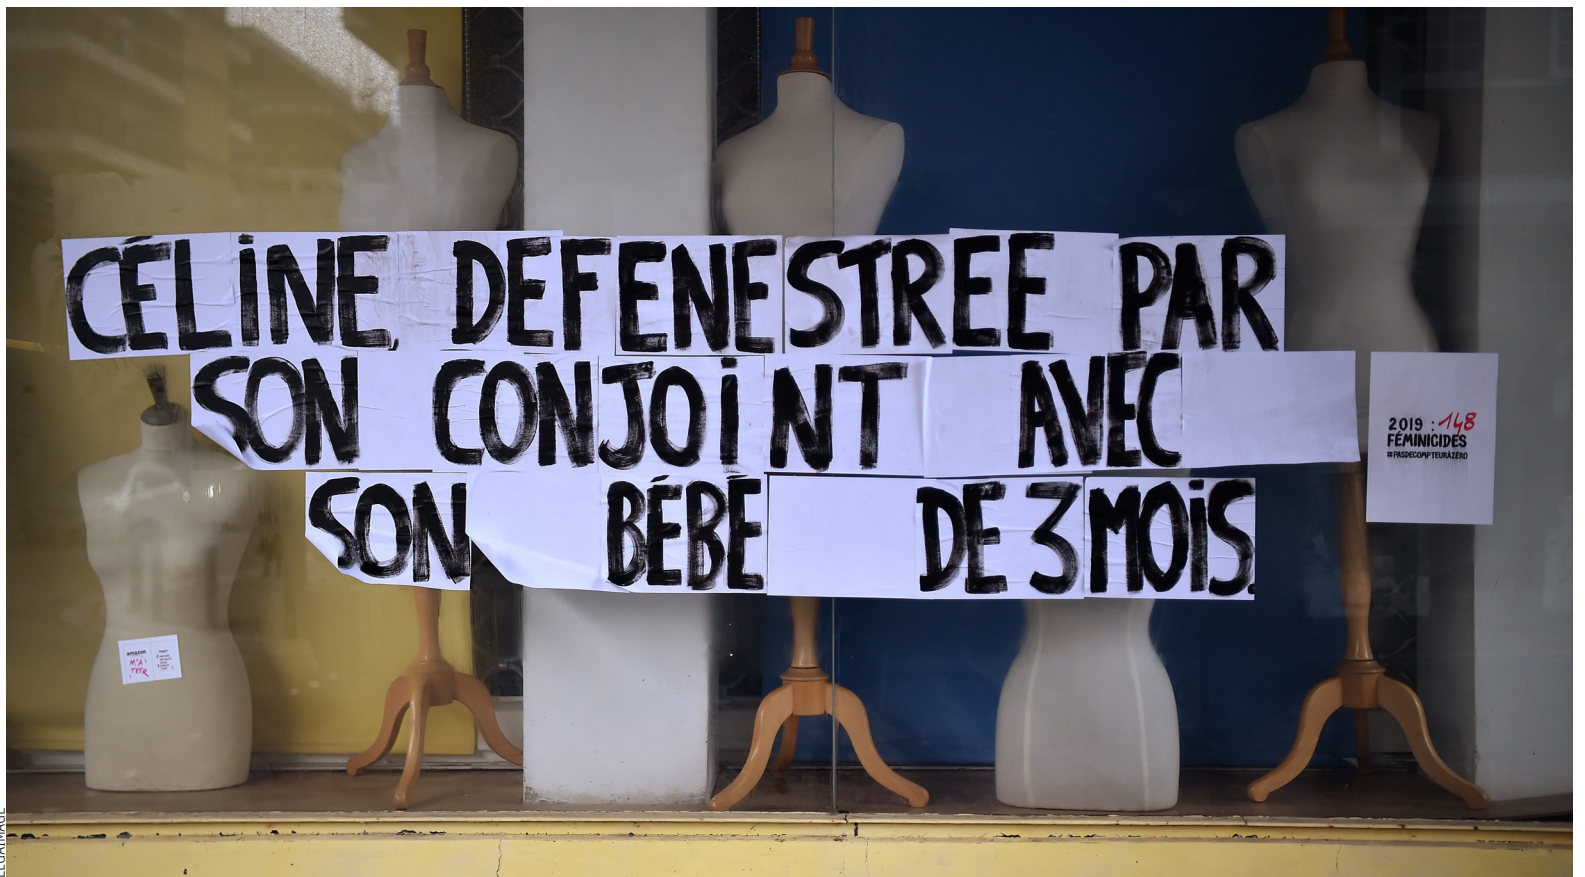 CÉLiNE, DEFENESTREE PAR
SON CONJOiNT AVEC
SON BÉBÉ DE 3 MOiS.
2019 : 148
FÉMINICIDES
#PASDECOMPTEURAZÉRO
amazon
M'A
TUER